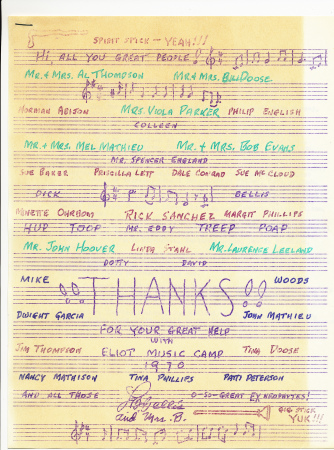 SPIRIT STICK - YEAH!!!
HI, ALL YOU GREAT PEOPLE!
MR. & MRS. AL THOMPSON MR & MRS. BILL DOOSE
NORMAN ABISON MRS. VIOLA PARKER PHILIP ENGLISH
COLLEEN
MR. & MRS. MEL MATHIEU MR. & MRS. BOB EVANS
MR. SPENCER ENGLAND
SUE BAKER PRISCILLA LETT DALE CONRAD SUE MCCLOUD
DICK BELLIS
RICK SANCHEZ MARGIT PHILLIPS
HUP TOOP MR. EDDY TREEP POAP
MR. JOHN HOOVER LINDA STAHL MR. LAURENCE LEELAND
DOTTY DAVID
MIKE THANKS WOODS
DWIGHT GARCIA JOHN MATHIEU
FOR YOUR GREAT HELP
JIM THOMPSON WITH TINA DOOSE
ELIOT MUSIC CAMP
1970
NANCY MATHISON TINA PHILLIPS PATTI PETERSON
AND ALL THOSE O-SO-GREAT EX NEOPHYTES!
and Mrs. B.
BIG STICK
YUK!!!